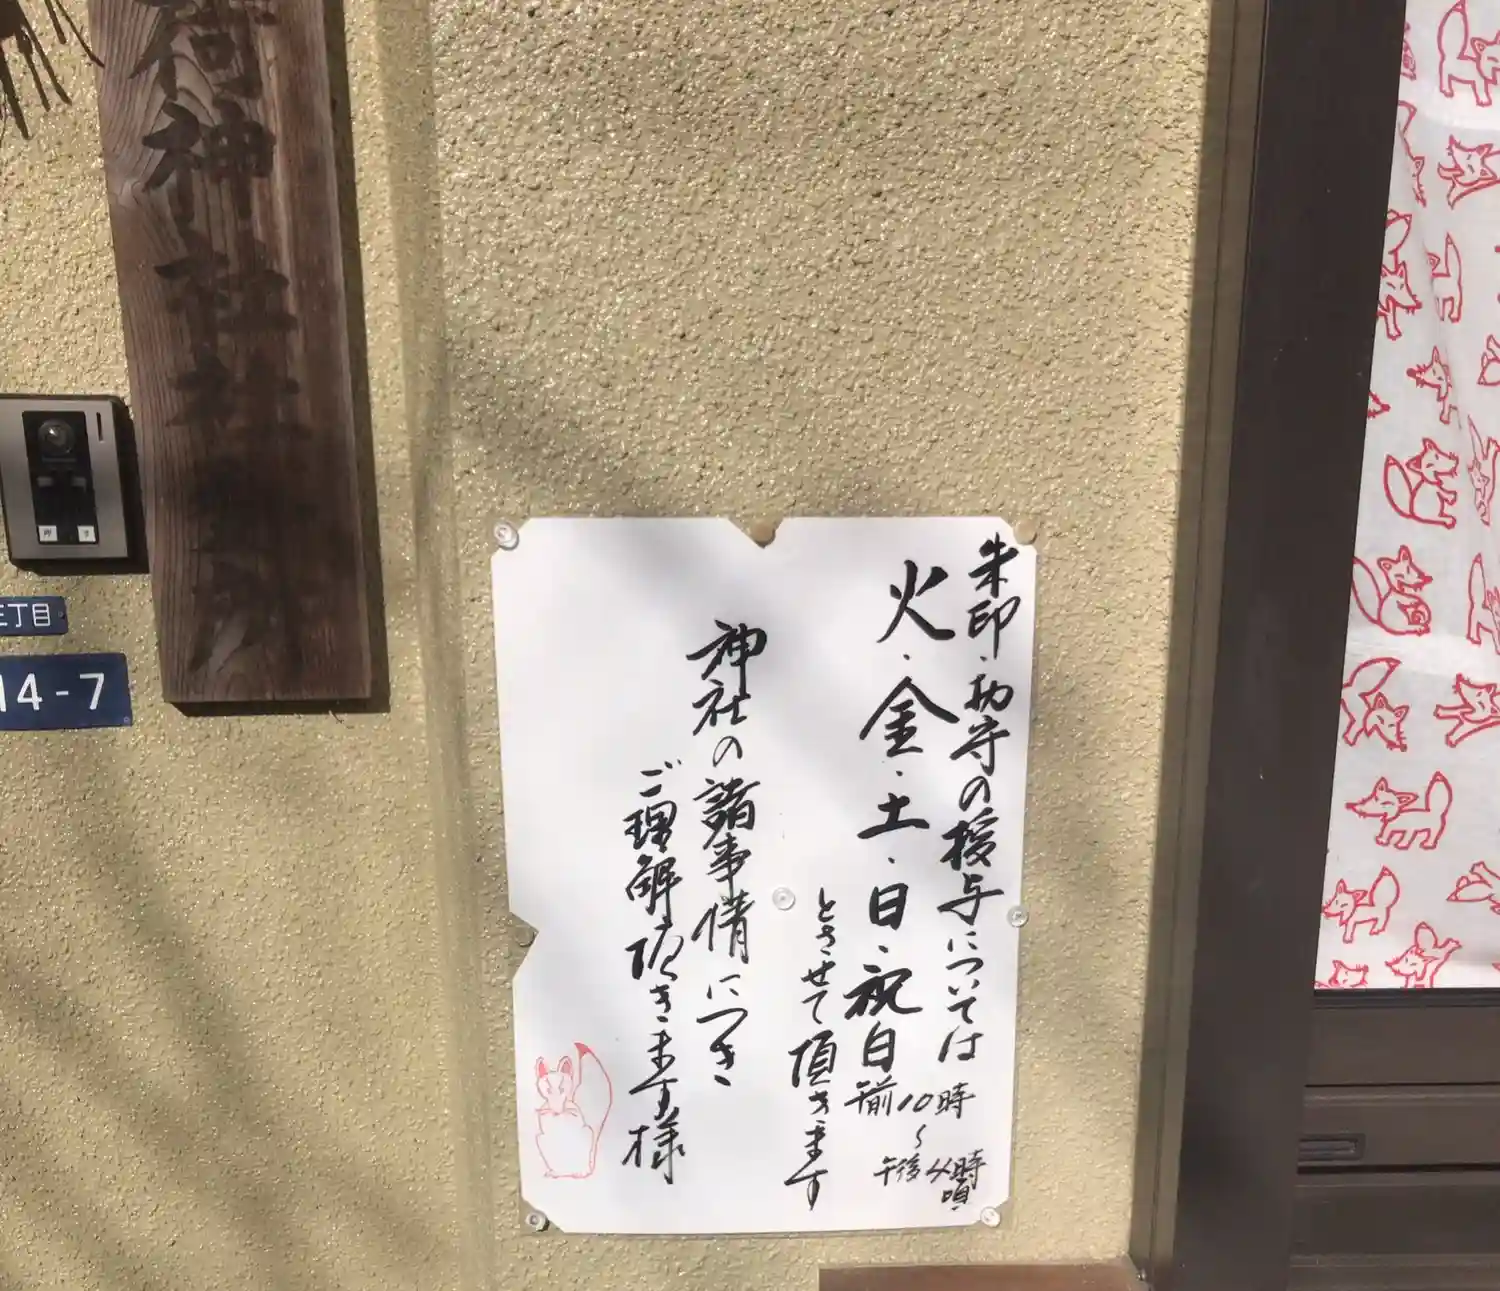 荷神社社務所
押す
三丁目
14-7
朱印・御守の授与については
火・金・土・日・祝日
午前10時
～
午後4時
頃
とさせて頂きます
神社の諸事情につき
ご理解頂きます様